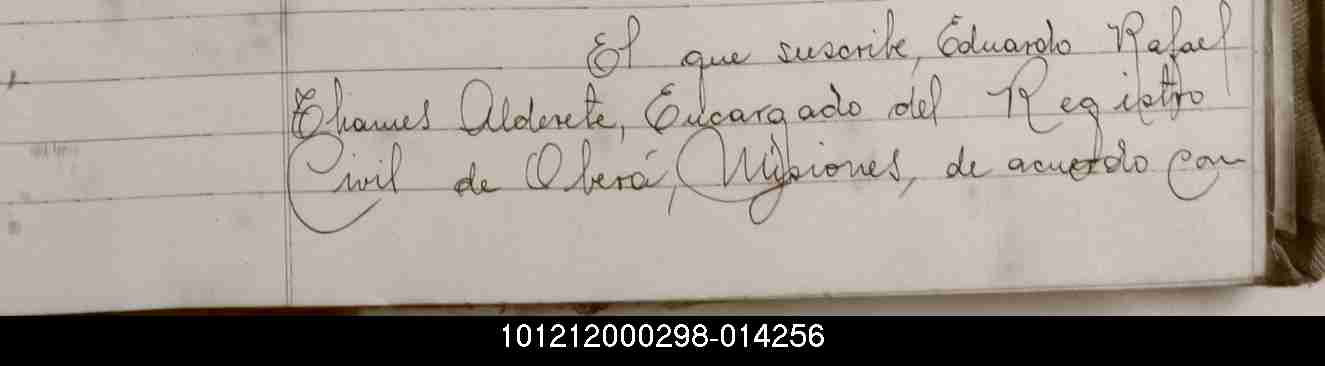 El que suscribe, Eduardo Rafael
Thames Alderete, Encargado del Registro
Civil de Oberá, Misiones, de acuerdo con
101212000298-014256